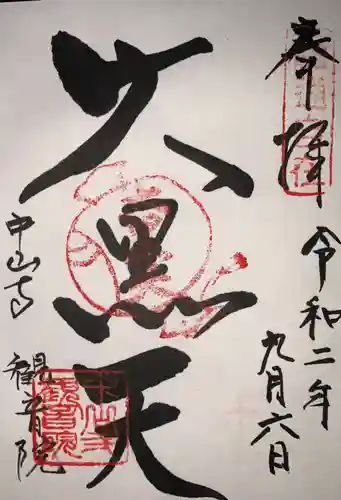 奉拝
令和二年
九月六日
大黒天
中山寺
観音院